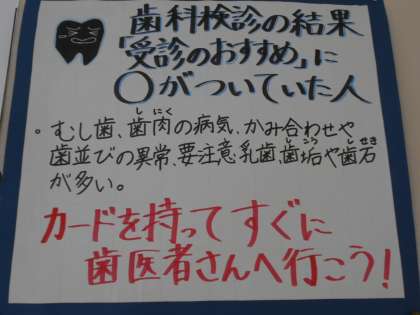 歯科検診の結果
「受診のおすすめ」に
〇がついていた人
。むし歯、歯肉の病気、かみ合わせや
歯並びの異常、要注意乳歯、歯垢や歯石
が多い。
カードを持ってすぐに
歯医者さんへ行こう！